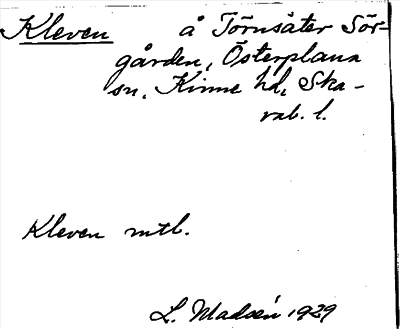 Kleven å Törnsäter Sör-
gården, Österplana
sn, Kinne hd, Ska-
rab. l.
Kleven mtl.
L. Madsén 1929